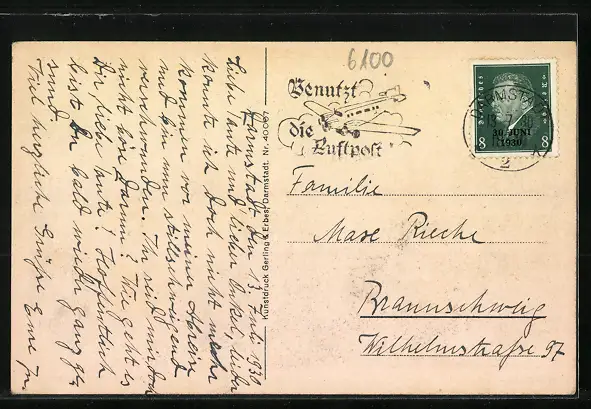 6100
Benutzt
die
Luftpost
Deutsches Reich
30. JUNI
1930
8 8
DARMSTADT
13.7.
2
Familie
Max Rieche
Braunschweig
Wilhelmstraße 97
Kunstdruck Gerling & Erbes, Darmstadt. Nr. 40067
Darmstadt den 13. Juli 1930
Liebe Tante und lieber Onkel, leider
konnte ich doch nicht mehr
kommen vor meiner Abreise
und bin nun stillschweigend
verschwunden. Ihr seid mir doch
nicht böse darum? Wie geht es
Dir liebe Tante? Hoffentlich
bist Du bald wieder ganz ge-
sund.
Viel herzliche Grüße Eure